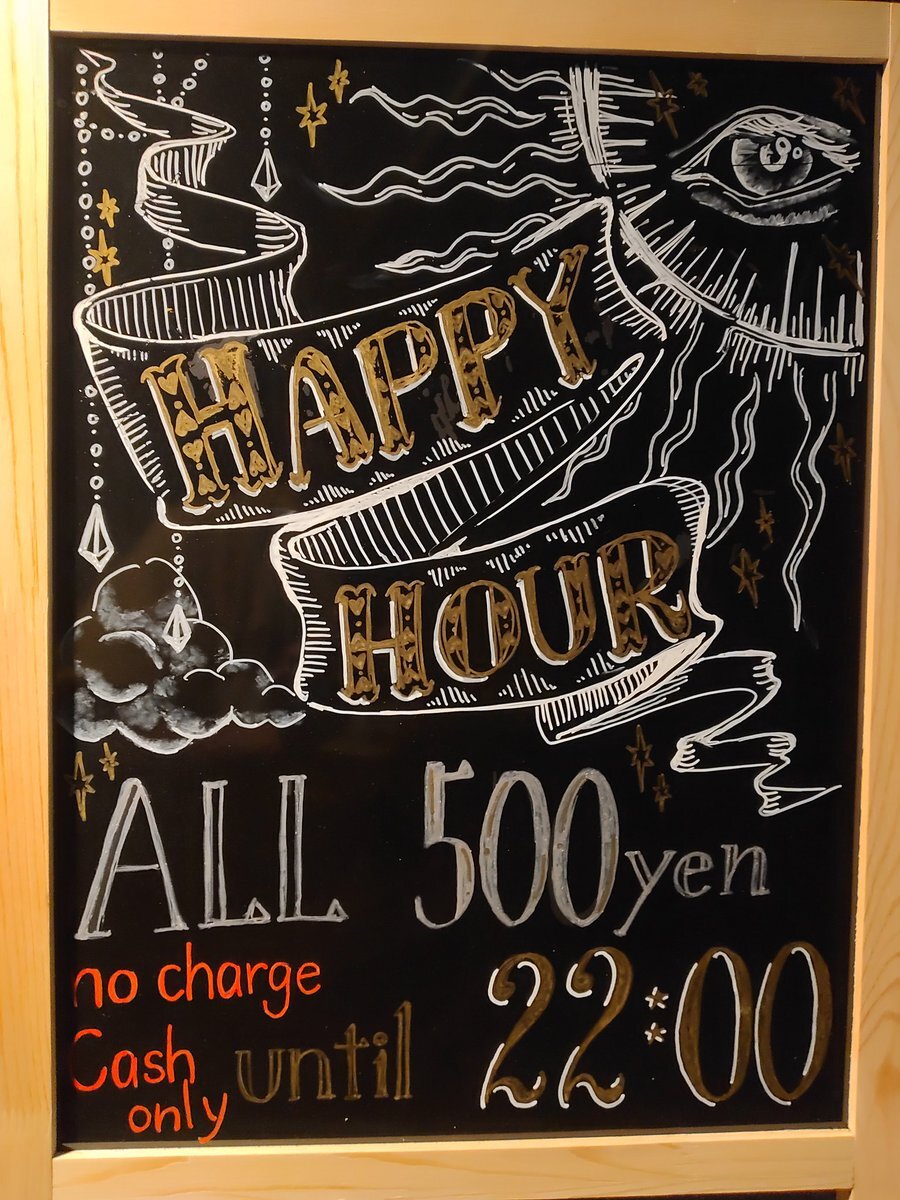 HAPPY
HOUR
ALL 500yen
no charge
Cash only
until 22:00